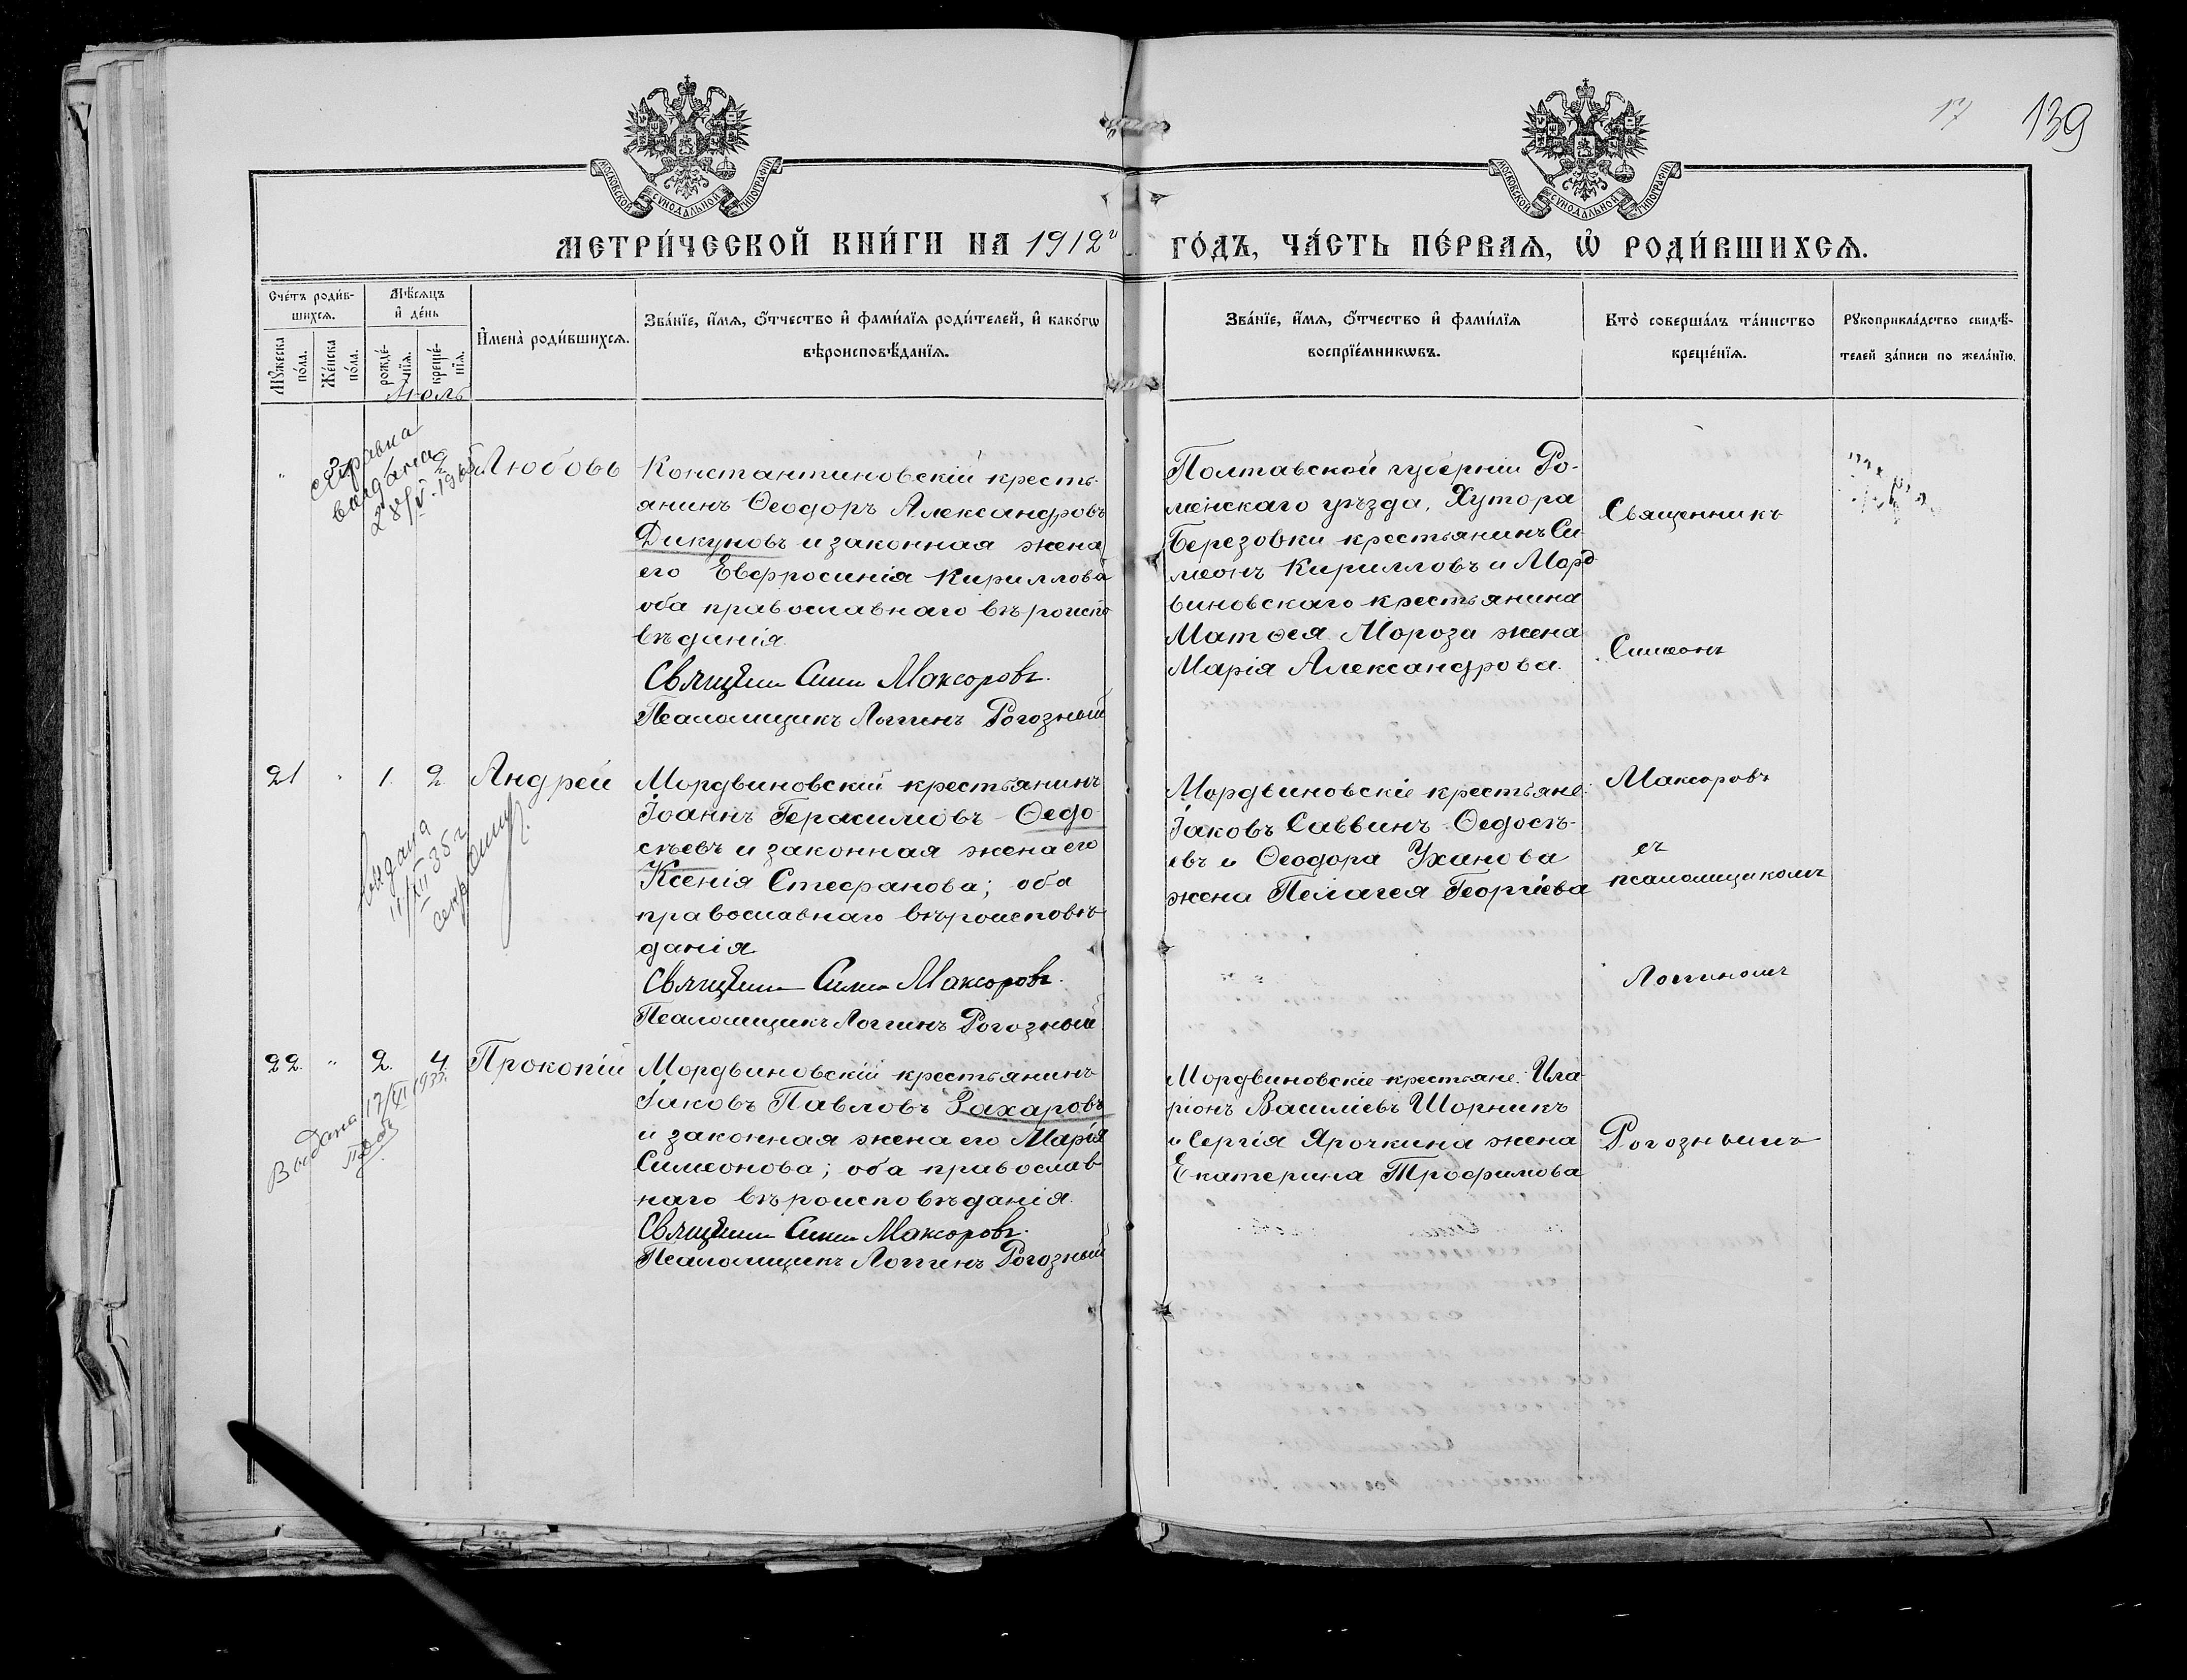 17 139
МОСКОВСКОЙ СѴНОДАЛЬНОЙ ТИПОГРАФІИ
МОСКОВСКОЙ СѴНОДАЛЬНОЙ ТИПОГРАФІИ
МЕТРИ́ЧЕСКОЙ КНИ́ГИ НА 1912 г
ГО́ДЪ, ЧА́СТЬ ПЕ́РВАѦ, Ѡ҆ РОДИ́ВШИХСѦ.
Сче́тъ роди́в-
шихсѧ.
Мꙋ́жеска
по́ла.
Же́нска
по́ла.
Мѣ́сѧцъ
и҆ де́нь
рожде́-
нїѧ.
креще́-
нїѧ.
Іюль
И҆мена̀ роди́вшихсѧ.
Зва́нїе, и҆́мѧ, ѻ҆́тчество и҆ фами́лїѧ роди́телей, и҆ како́гѡ
вѣроисповѣ́данїѧ.
Зва́нїе, и҆́мѧ, ѻ҆́тчество и҆ фами́лїѧ
воспрїе́мникѡвъ.
Кто̀ соверша́лъ та́инство
креще́нїѧ.
Рꙋкоприкла́дство свидѣ́-
телей за́писи по жела́нїю.
" 2 Любовь
Справка
28/V-196
Константиновскій кресть-
янинъ Ѳеодоръ Александровъ
Дикуновъ и законная жена
его Евфросинія Кириллова
оба православнаго вѣроиспо
вѣданія.
Свящ Сим Максоровъ.
Псаломщикъ Логгинъ Рогозный
Полтавской губерніи Ро-
менскаго уѣзда, Хутора
Березовки крестьянинъ Си
меонъ Кирилловъ и Морд
виновскаго крестьянина
Матѳея Мороза жена
Марія Александрова.
Священникъ
Симеонъ
21 " 1. 2. Андрей
Выдана
11/XII 35 г
Мордвиновскій крестьянинъ
Іоаннъ Герасимовъ Ѳедо
сѣевъ и законная жена его
Ксенія Стефанова; оба
православнаго вѣроисповѣ
данія
Свящ Сим Максоровъ.
Псаломщикъ Логгинъ Рогозный
Мордвиновскіе крестьяне:
Іаковъ Саввинъ Ѳедосѣ-
евъ и Ѳеодора Уханова
жена Пелагея Георгіева
Максоровъ
съ
псаломщикомъ
Логгиномъ
22. " 2. 4. Прокопій
Выдана 17/VI 1933.
Мордвиновскій крестьянинъ
Іаковъ Павловъ Захаровъ
и законная жена его Марія
Симеонова; оба православ
наго вѣроисповѣданія.
Свящ Сим Максоровъ.
Псаломщикъ Логгинъ Рогозный
Мордвиновскіе крестьяне: Ила
ріонъ Василіевъ Шорникъ
и Сергія Ярочкина жена
Екатерина Трофимова
Рогознымъ